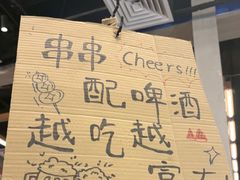 串串 Cheers!!!
配啤酒
越吃越
富有